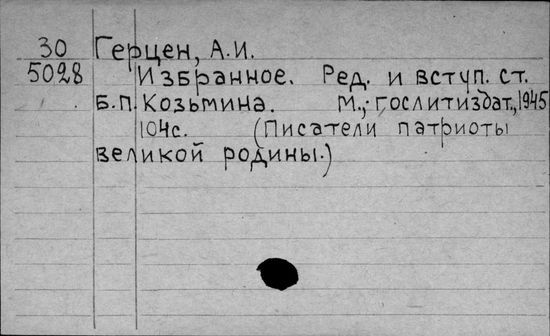 30 Герцен, А.И.
5028 Избранное. Ред. и вступ. ст.
Б.П. Козьмина. М., Гослитиздат, 1945
104с. (Писатели патриоты
великой родины.)